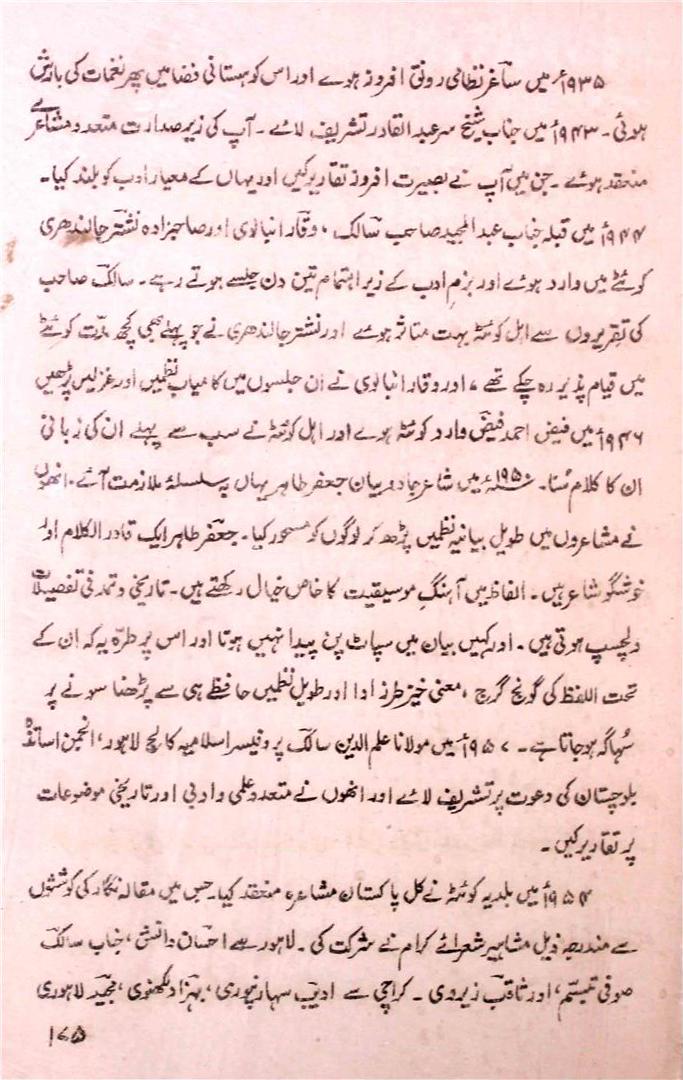 ۱۹۳۵ء میں ساغر نظامی رونق افروز ہوے اور اس کوہستانی فضا میں پھر نغمات کی بارش
ہوئی۔ ۱۹۴۳ء میں جناب شیخ سر عبدالقادر تشریف لائے۔ آپ کی زیر صدارت متعدد مشاعرے
منعقد ہوئے۔ جن میں آپ نے بصیرت افروز تقاریر کیں اور یہاں کے معیار ادب کو بلند کیا۔
۱۹۴۴ء میں قبلہ جناب عبدالمجید صاحب سالک، وقار انبالوی اور صاحبزادہ نشتر جالندھری
کوئٹے میں وارد ہوئے اور بزم ادب کے زیر اہتمام تین دن جلسے ہوتے رہے۔ سالک صاحب
کی تقریروں سے اہل کوئٹہ بہت متاثر ہوئے اور نشتر جالندھری نے جو پہلے بھی کچھ مدّت کوئٹے
میں قیام پذیر رہ چکے تھے، اور وقار انبالوی نے ان جلسوں میں کامیاب نظمیں اور غزلیں پڑھیں
۱۹۴۶ء میں فیض احمد فیض وارد کوئٹہ ہوے اور اہل کوئٹہ نے سب سے پہلے ان کی زبانی
ان کا کلام سُنا۔ ۱۹۵۰ء میں شاعر جادو بیان جعفر طاہر یہاں بسلسلۂ ملازمت آئے۔ انھوں
نے مشاعروں میں طویل بیانیہ نظمیں پڑھ کر لوگوں کو مسحور کیا۔ جعفر طاہر ایک قادر الکلام اور
خوشگو شاعر ہیں۔ الفاظ میں آہنگِ موسیقیت کا خاص خیال رکھتے ہیں۔ تاریخی و تمدنی تفصیلات
دلچسپ ہوتی ہیں۔ اور کہیں بیان میں سپاٹ پن پیدا نہیں ہوتا اور اس پر طرّہ یہ کہ ان کے
تحت اللفظ کی گونج گرج، معنی خیز طرز ادا اور طویل نظمیں حافظے ہی سے پڑھنا سونے پر
سُہاگہ ہو جاتا ہے۔ ۱۹۵۷ء میں مولانا علم الدین سالک پروفیسر اسلامیہ کالج لاہور، انجمن اساتذہ
بلوچستان کی دعوت پر تشریف لائے اور انھوں نے متعدد علمی و ادبی اور تاریخی موضوعات
پر تقاریر کیں۔
۱۹۵۴ء میں بلدیہ کوئٹہ نے کل پاکستان مشاعرہ منعقد کیا۔ جس میں مقالہ نگار کی کوششوں
سے مندرجہ ذیل مشاہیر شعرائے کرام نے شرکت کی۔ لاہور سے احسان دانش، جناب سالک
صوفی تبسّم، اور ثاقب زیروی۔ کراچی سے ادیب سہارنپوری، بہزاد لکھنوی، مجید لاہوری
۱۶۵